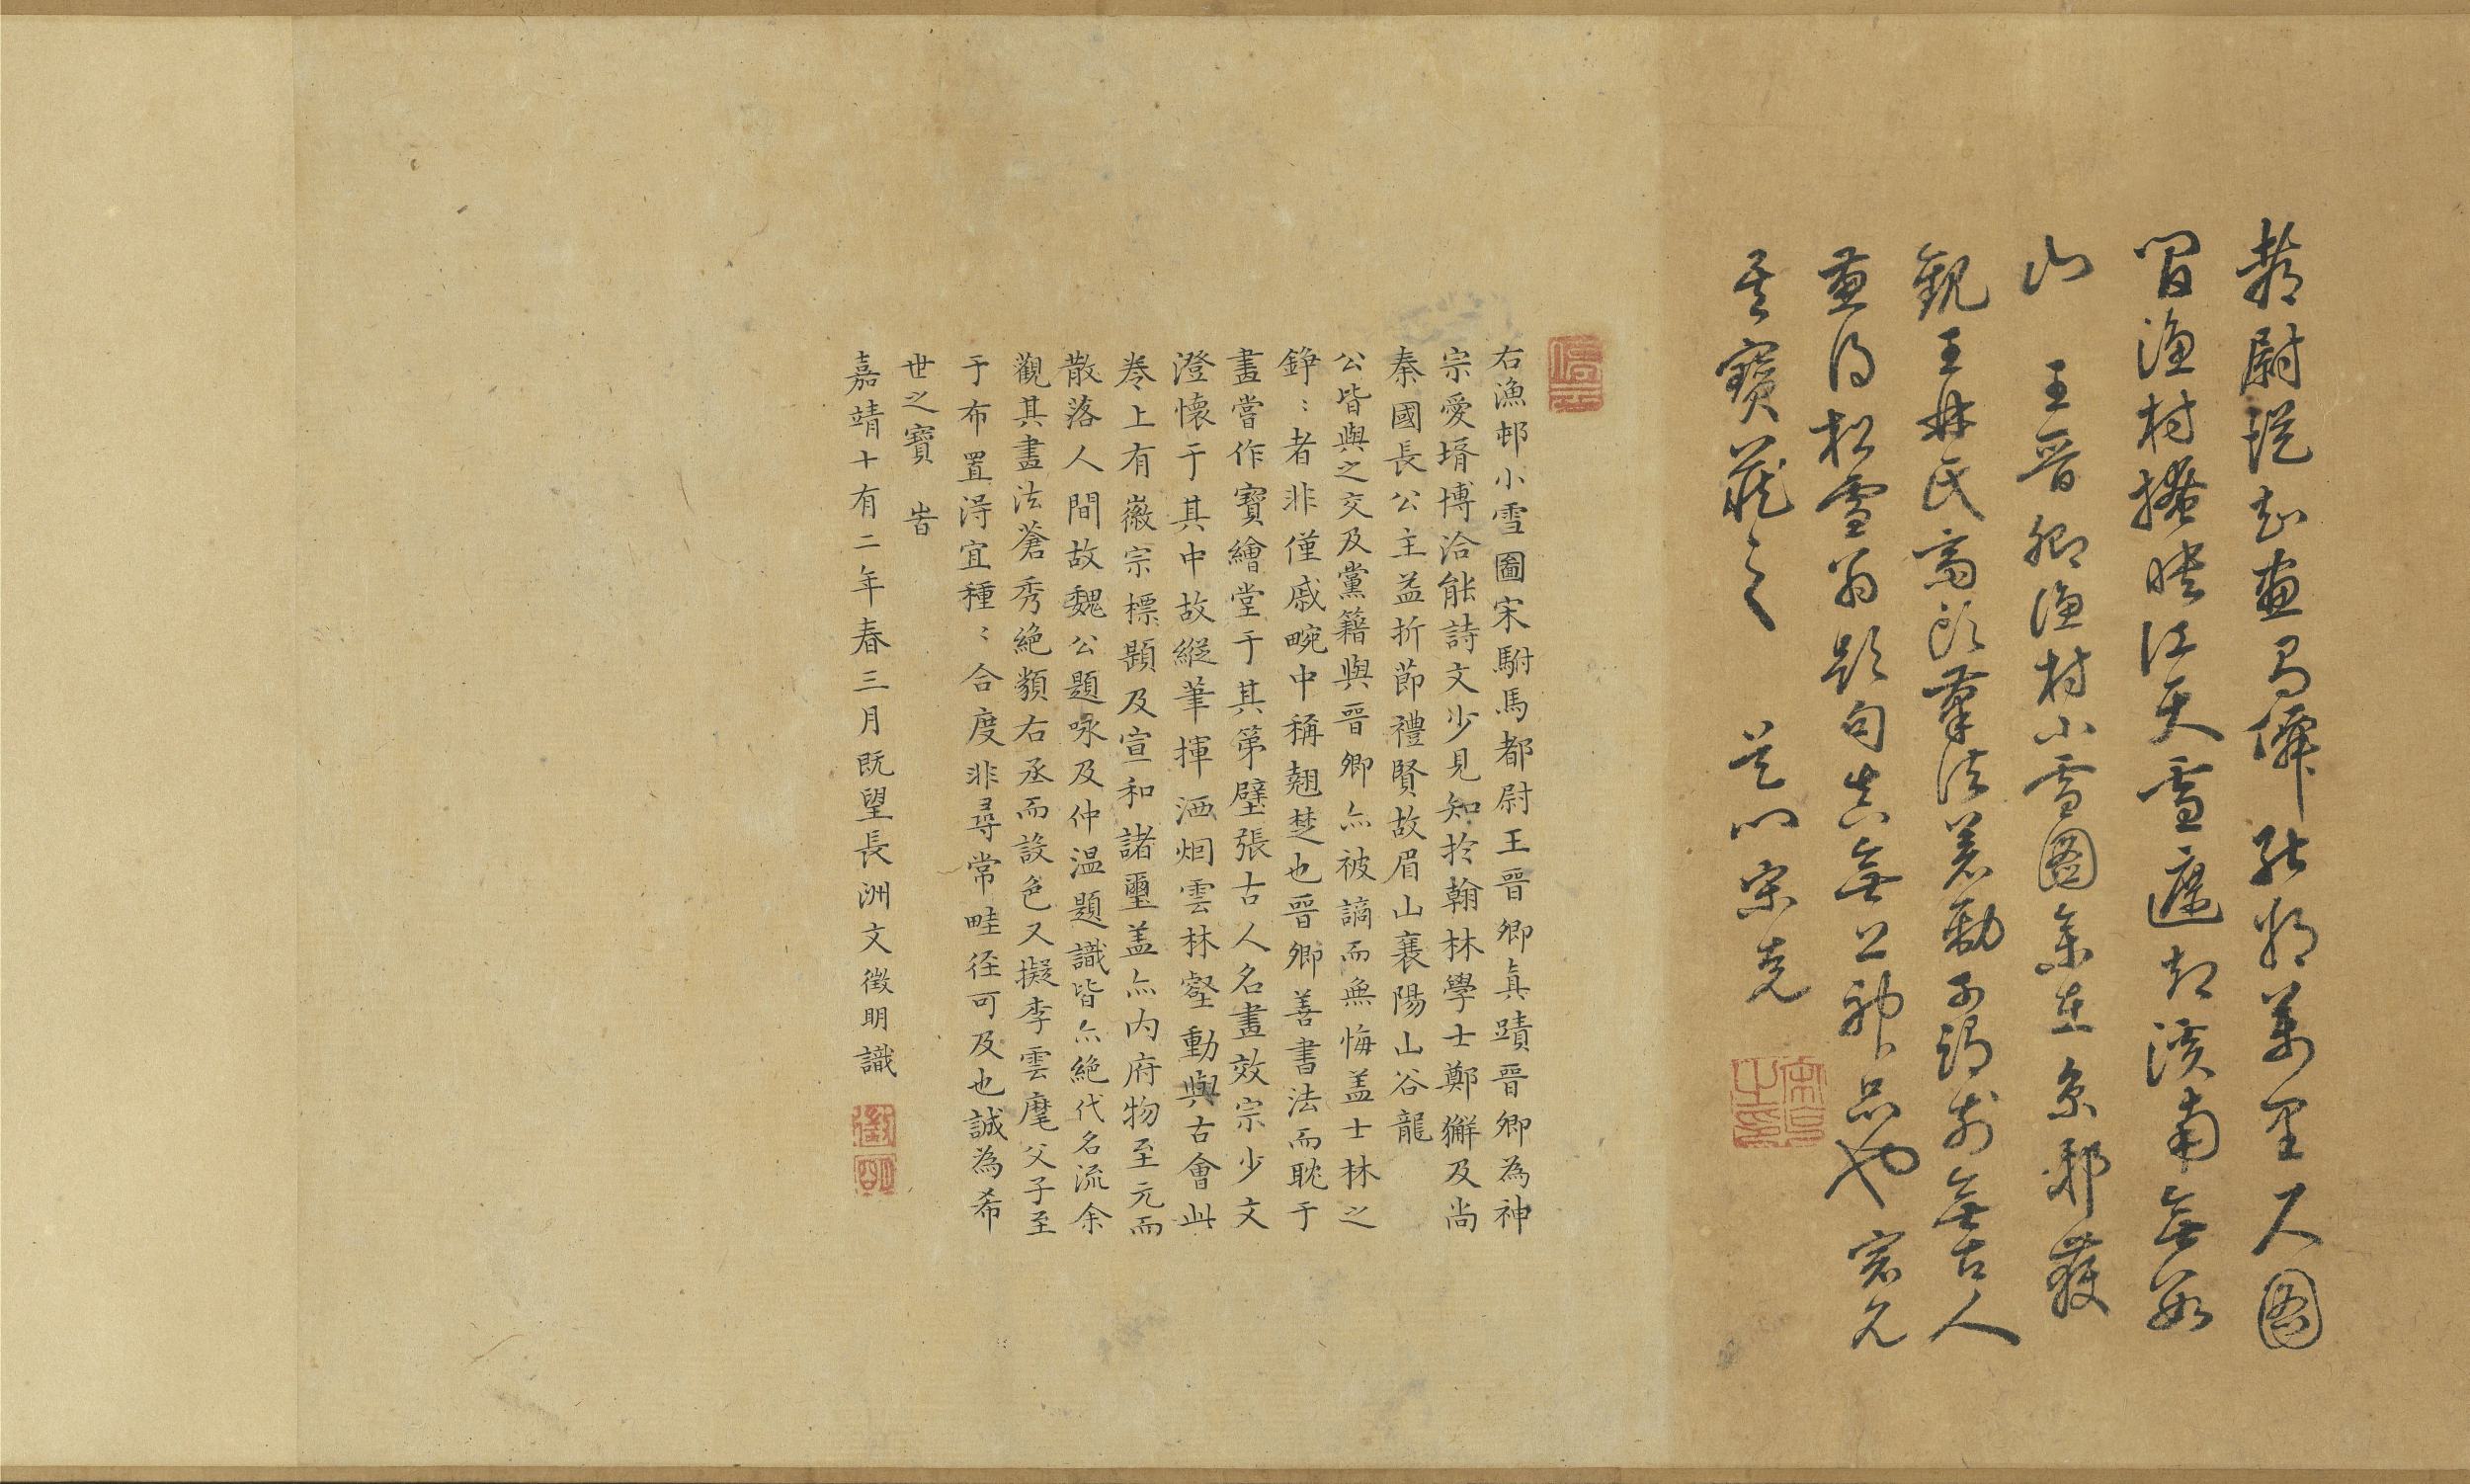 都尉從知畫能將萬里入圖
間漁村掩映江天雪遮却溪南無數
山　王晉卿漁村小雪圖余在京獲
觀王氏齋頭筆法若動不謂前無古人
兼得松雪翁題句真無上神品也
其寶藏之　宋克
停雲
右漁邨小雪圖宋駙馬都尉王晉卿真蹟晉卿為神
宗愛壻博洽能詩文少見知於翰林學士鄭獬及尚
秦國長公主益折節禮賢故眉山襄陽山谷龍
公皆與之交及黨籍與晉卿亦被謫而無悔盖士林之
錚〻者非僅戚畹中稱翹楚也晉卿善書法而耽于
畫嘗作寶繪堂于其第壁張古人名畫效宗少文
澄懷于其中故縱筆揮洒烟雲林壑動與古會此
卷上有徽宗標題及宣和諸璽盖亦內府物至元而
散落人間故魏公題咏及仲温題識皆亦絕代名流余
觀其畫法蒼秀絕類右丞而設色又擬李雲麾父子至
于布置得宜種〻合度非尋常畦徑可及也誠為希
世之寶　旹
嘉靖十有二年春三月既望長洲文徵明識
徵明